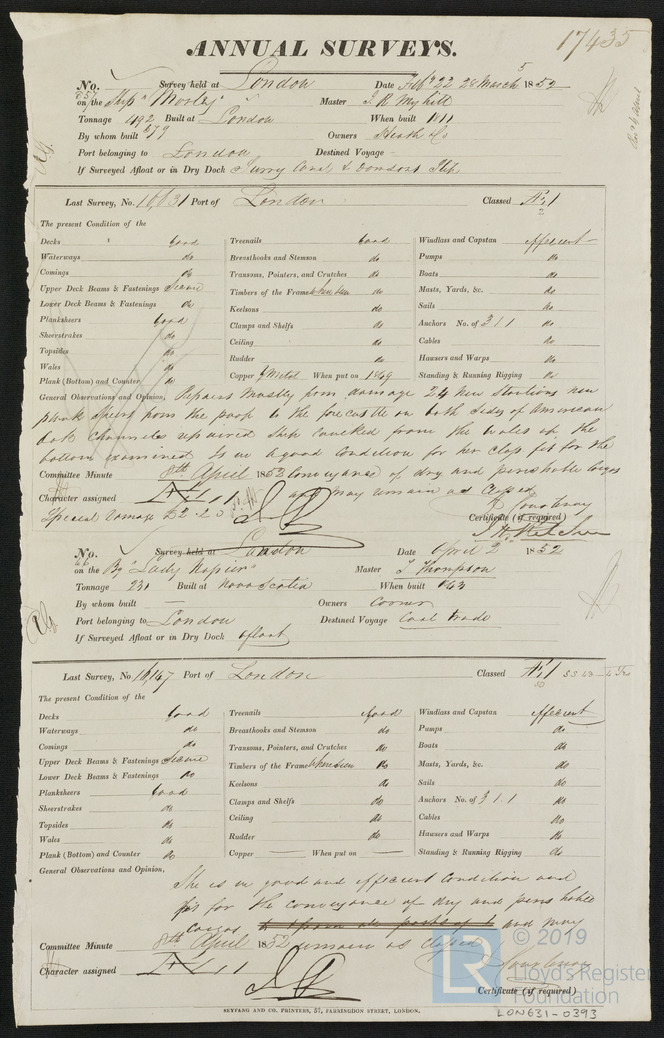 17435
ANNUAL SURVEYS.
No. Survey held at London Date Feby 22 28 March 5 1852
on the Ship "Morley" Master J. R. Myhill
Tonnage 492 Built at London When built 1811
By whom built Owners Heath & Co
Port belonging to London Destined Voyage -
If Surveyed Afloat or in Dry Dock Surry Canal &
Last Survey, No. 16,631 Port of London Classed Æ 1
The present Condition of the
Decks Good Treenails Good Windlass and Capstan efficient
Waterways do Breasthooks and Stemson do Pumps do
Comings do Transoms, Pointers, and Crutches do Boats do
Upper Deck Beams & Fastenings Secure Timbers of the Frame when seen do Masts, Yards, &c. do
Lower Deck Beams & Fastenings do Keelsons do Sails do
Planksheers Good Clamps and Shelfs do Anchors No. of 3 1 1 do
Sheerstrakes do Ceiling do Cables do
Topsides do Rudder do Hawsers and Warps do
Wales do Copper When put on 1849 Standing & Running Rigging do
Plank (Bottom) and Counter do
General Observations and Opinion, Repairs Mostly from damage 24 New Stantions new
from the poop to the forecastle on both sides of American
Oak Channels repaired Ship caulked from the wales up the
bottom examined Is in good condition for her class fit for the
Committee Minute 8th April 1852 Conveyance of dry and perishable Cargos
Character assigned Æ 1 and may remain as classed
Special Damage £2.2.0
Certificate (if required)
No. Survey held at London Date April 2 1852
on the Bg "Lady Napier" Master J Thompson
Tonnage 231 Built at Nova Scotia When built 43
By whom built — Owners Corner
Port belonging to London Destined Voyage Coal trade
If Surveyed Afloat or in Dry Dock afloat
Last Survey, No. 16,147 Port of London Classed Æ 1
The present Condition of the
Decks Good Treenails Good Windlass and Capstan efficient
Waterways do Breasthooks and Stemson do Pumps do
Comings do Transoms, Pointers, and Crutches do Boats do
Upper Deck Beams & Fastenings Secure Timbers of the Frame when seen do Masts, Yards, &c. do
Lower Deck Beams & Fastenings do Keelsons do Sails do
Planksheers Good Clamps and Shelfs do Anchors No. of 3 1 1 do
Sheerstrakes do Ceiling do Cables do
Topsides do Rudder do Hawsers and Warps do
Wales do Copper — When put on — Standing & Running Rigging do
Plank (Bottom) and Counter do
General Observations and Opinion,
She is in good and efficient condition and
fit for the conveyance of dry and perishable
cargos and may
Committee Minute 8th April 1852 remain as classed
Character assigned Æ 1
Certificate (if required)
© 2019
LR
Lloyd's Register
Foundation
SEYFANG AND CO. PRINTERS, 57, FARRINGDON STREET, LONDON.
LON631-0393